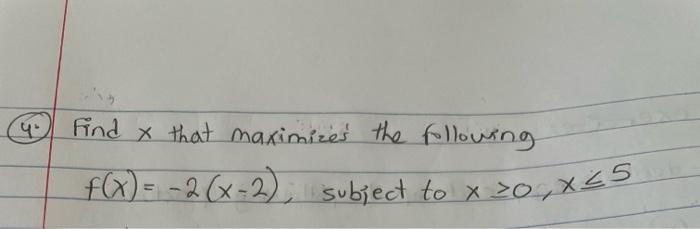 4. Find x that maximizes the following
f(x) = -2(x-2), subject to x ≥0, x ≤ 5